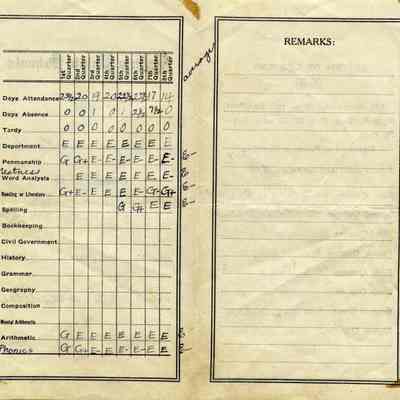 1st Quarter 2nd Quarter 3rd Quarter 4th Quarter 5th Quarter 6th Quarter 7th Quarter 8th Quarter average
Days Attendance 20 19 20 17 14
Days Absence 0 0 1 0 1 2½ 7½ 0
Tardy 0 0 0 0 0 0 0 0
Deportment E E E E E E E E
Penmanship G G+ E- E- E- E- E- E- E-
Neatness
Word Analysis E E E E E E E- E-
Reading or Literature G+ E- E E E E G- G+ E-
Spelling G G+ E E E-
Bookkeeping
Civil Government
History
Grammar
Geography
Composition
Mental Arithmetic
Arithmetic G E E E E E E E E
Phonics G G+ E- E- E- E- E E E-
REMARKS: